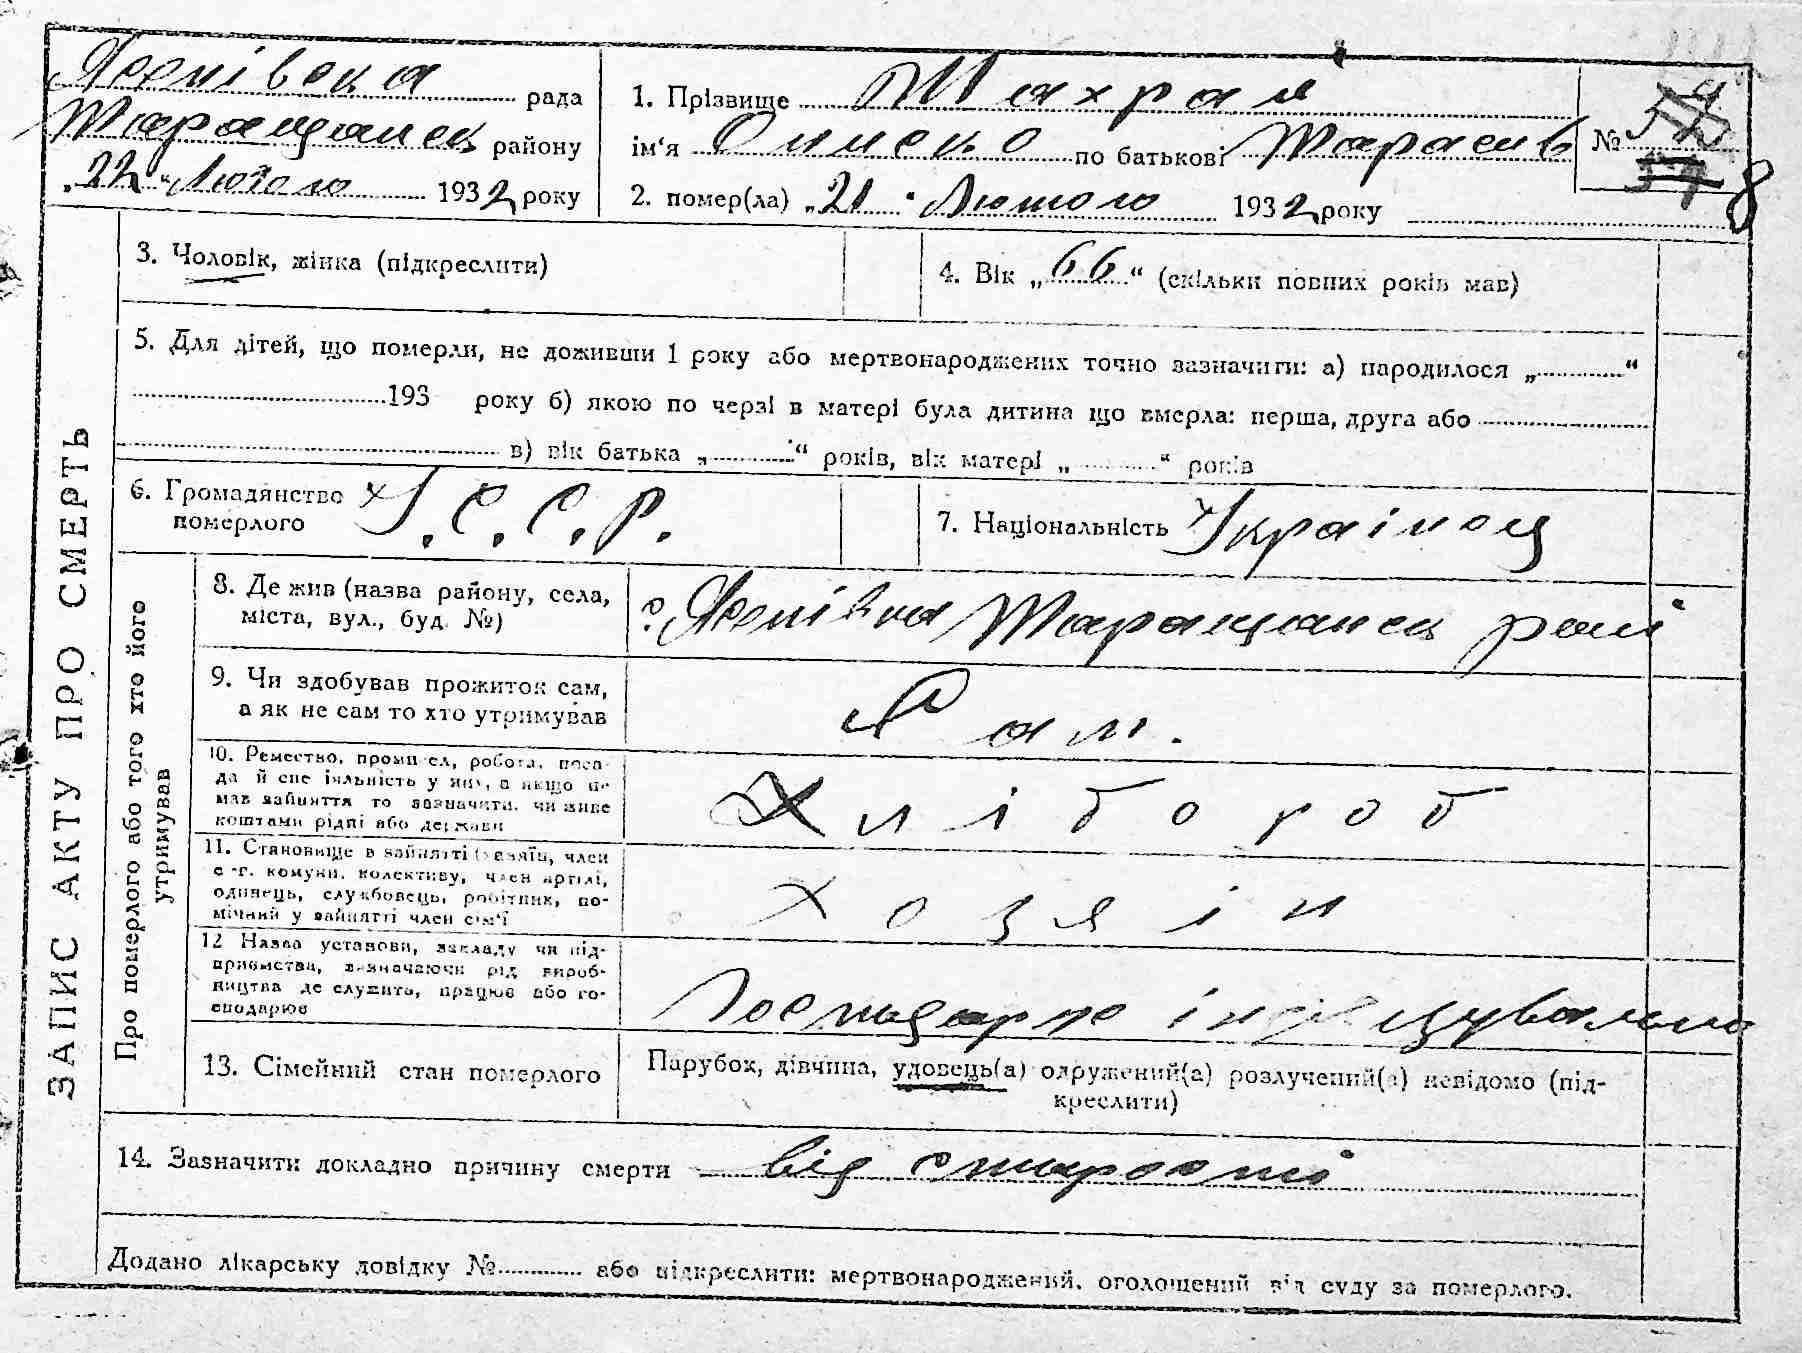 Лесківська рада
Таращанськ району
„22“ Лютого 1932 року
1. Прізвище Шахрая
ім'я Олисько по батькові Тарасив
2. помер(ла) „21“ Лютого 1932 року
№ 8
ЗАПИС АКТУ ПРО СМЕРТЬ
3. Чоловік, жінка (підкреслити)
4. Вік „66“ (скільки повних років мав)
5. Для дітей, що померли, не доживши 1 року або мертвонароджених точно зазначити: а) народилося „............“
193 року б) якою по черзі в матері була дитина що вмерла: перша, друга або
в) вік батька „............“ років, вік матері „............“ років
6. Громадянство
померлого У.С.С.Р.
7. Національність Українец
Про померлого або того хто його
утримував
8. Де жив (назва району, села,
міста, вул., буд. №)
Таращанськ рай
9. Чи здобував прожиток сам,
а як не сам то хто утримував
Сам.
10. Ремество, промисел, робота, поса-
да й спеціяльність у них, а якщо не
мав зайняття то зазначити, чи живе
коштами рідні або держави
Хлібороб
11. Становище в зайнятті (хазяїн, член
с.-г. комуни, колективу, член артілі,
одинець, службовець, робітник, по-
мічний у зайнятті член сім'ї
Хозяін
12 Назва установи, закладу чи під-
приємства, зазначаючи рід вироб-
ництва де служить, працює або го-
сподарює
13. Сімейний стан померлого
Парубок, дівчина, удовець(а) одружений(а) розлучений(а) невідомо (під-
креслити)
14. Зазначити докладно причину смерти від старости
Додано лікарську довідку №............ або підкреслити: мертвонароджений, оголошений від суду за померлого.